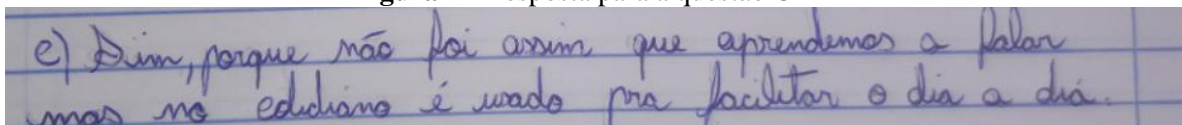 e) Sim, porque não foi assim que aprendemos a falar
mas no edidiano é usado pra facilitar o dia a dia.